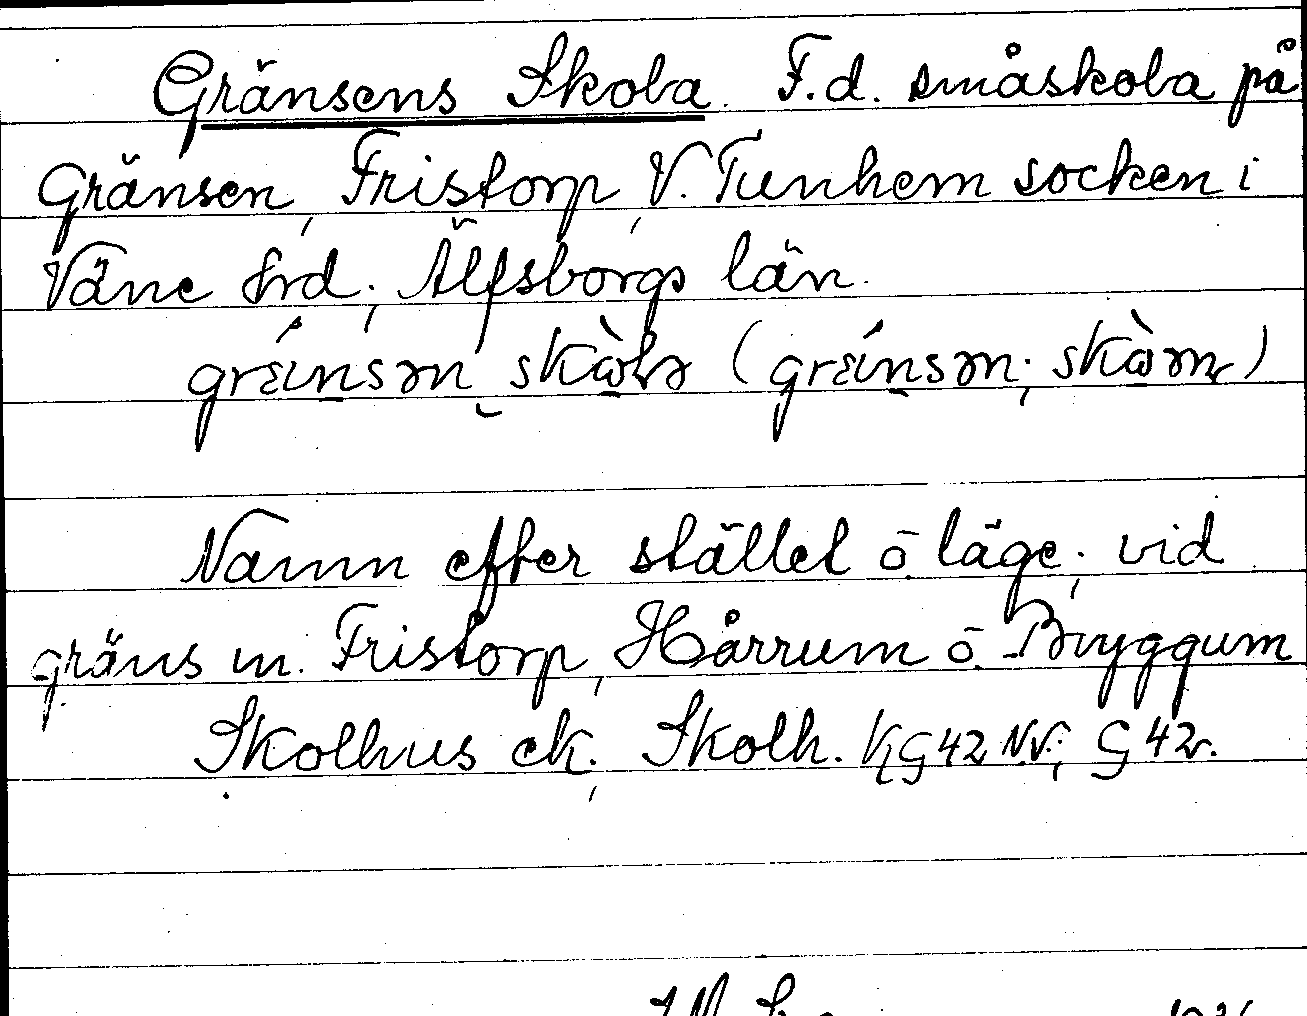 Gränsens Skola. F.d. småskola på
Gränsen, Fristorp, V. Tunhem socken i
Väne hrd, Älfsborgs län.
Namn efter stället o. läge, vid
gräns m. Fristorp, Hårrum o. Bryggum
Skolhus ek., Skolh. KG42NV; G42v.